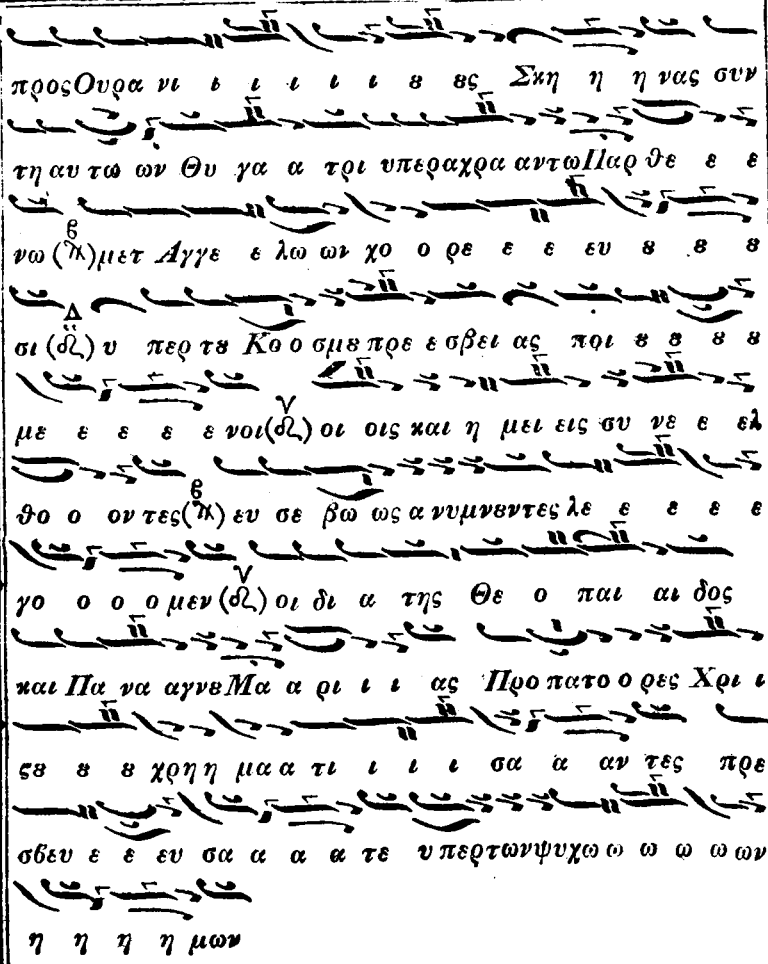 προς Ουρα νι ι ι ι ι ι ȣ ȣς Σκη η η νας συν
τη αυ τω ων Θυ γα α τρι υπεραχρα αντω Παρ θε ε ε
νω (π) μετ Αγγε ε λω ων χο ο ρε ε ε ευ ȣ ȣ ȣ
σι (δ) υ περ τȣ Κο ο σμȣ πρε ε σβει ας πρι ȣ ȣ ȣ ȣ
με ε ε ε ε νοι (δ) οι οις και η μει εις συ νε ε ελ
θο ο ον τες (π) ευ σε βω ως α νυμνȣντες λε ε ε ε ε
γο ο ο ο μεν (δ) οι δι α της Θε ο παι αι δος
και Πα να αγνȣ Μα α ρι ι ι ας Προ πατο ο ρες Χρι ι
ςȣ ȣ ȣ χρη η μα α τι ι ι ι σα α αν τες πρε
σβευ ε ε ευ σα α α α τε υ περ των ψυχω ω ω ω ω ων
η η η η μων